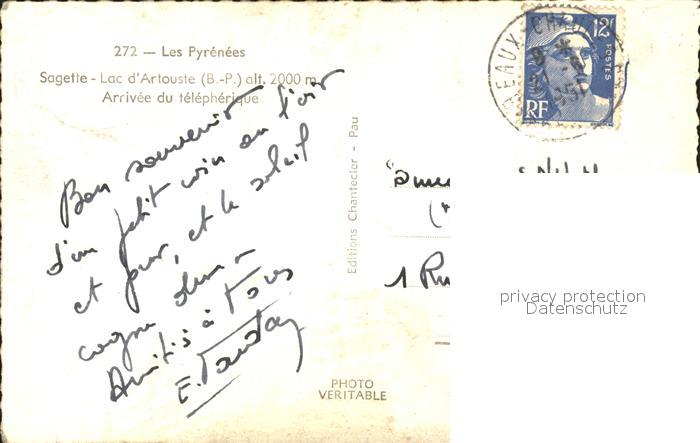 272 — Les Pyrénées
Sagette - Lac d'Artouste (B.-P.) alt. 2000 m
Arrivée du téléphérique
Bon souvenir
d'un petit coin où l'air
et pur, et le soleil
cogne dur
Amitiés à tous
E.
Editions Chantecler - Pau
PHOTO
VERITABLE
12F
POSTES
RF
1 Ru
privacy protection
Datenschutz